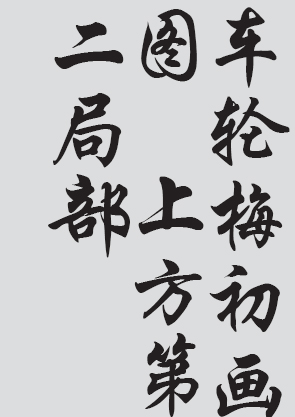 车轮梅初画
图 上方第
二局部